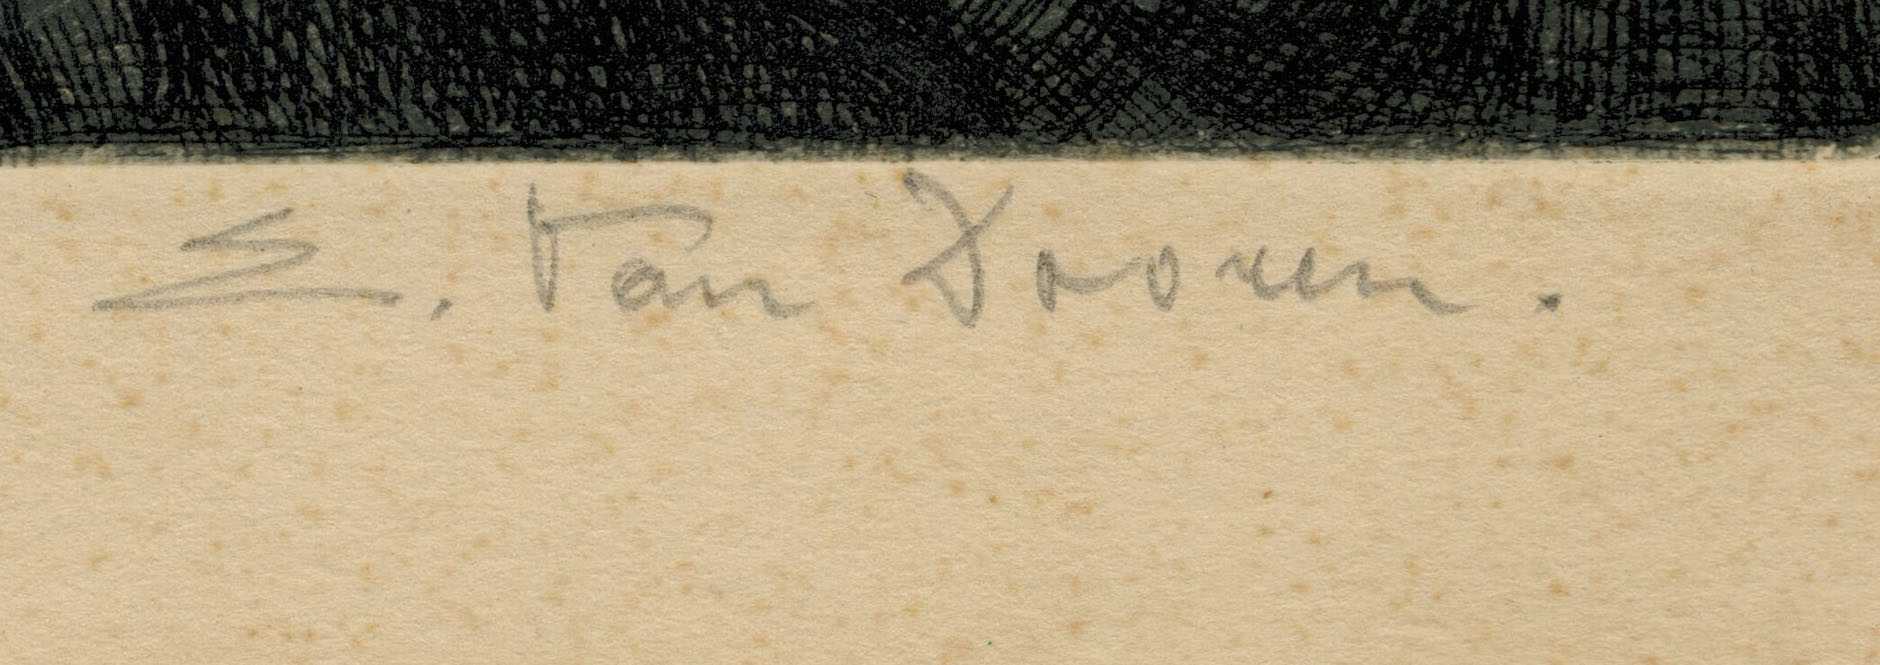 E. Van Dooren.